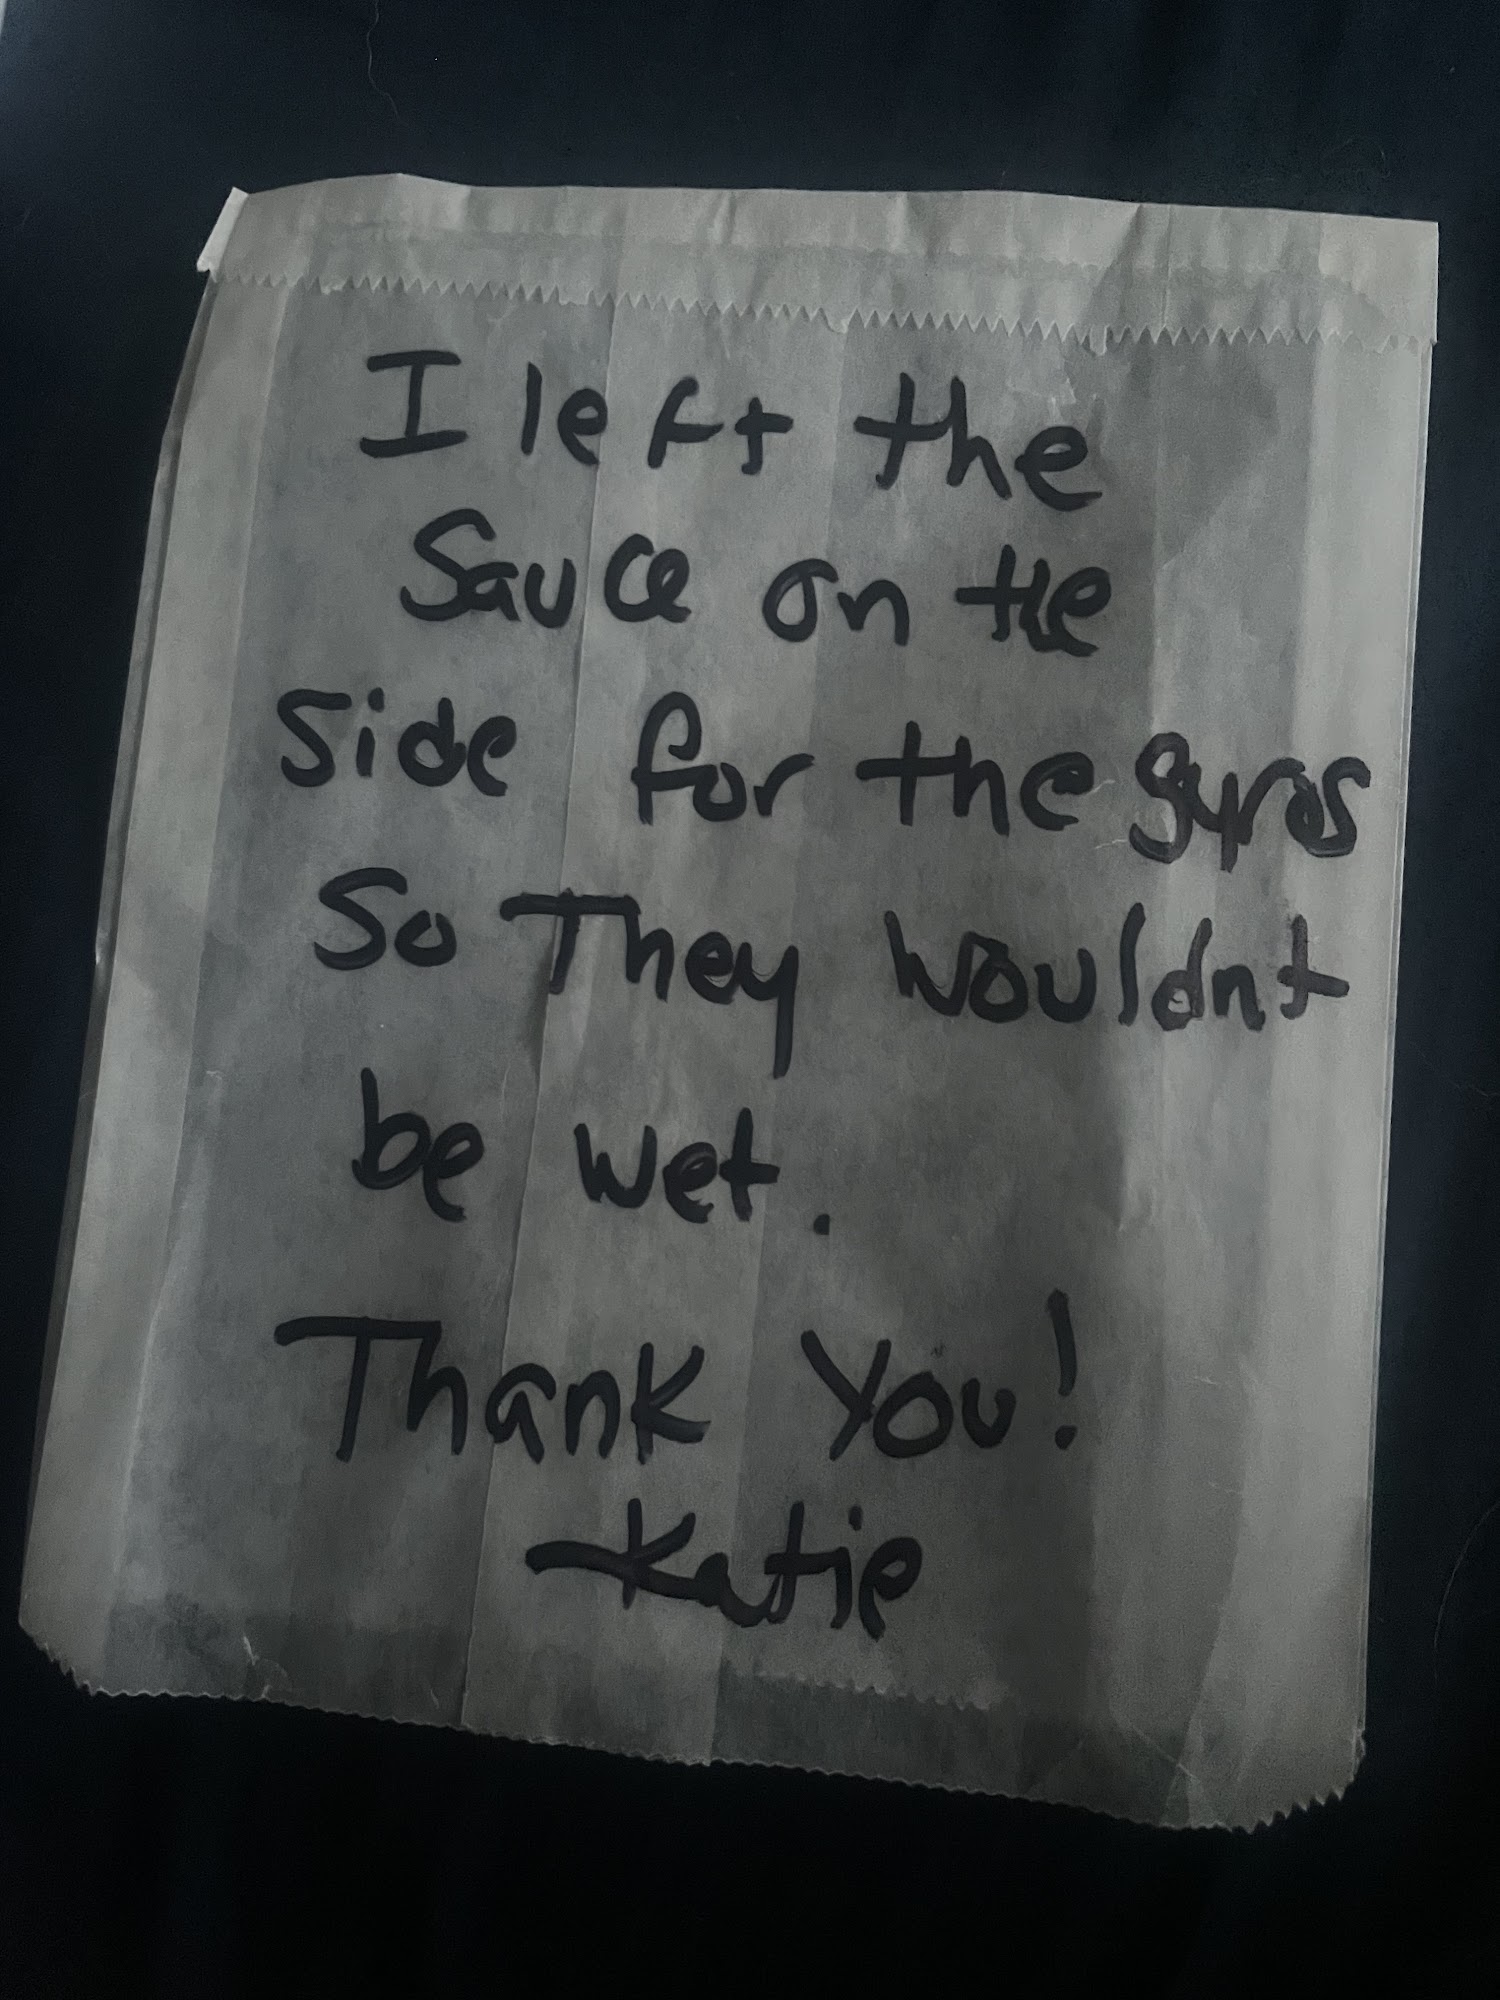 I left the
Sauce on the
side for the gyros
So They wouldnt
be wet.
Thank You!
Katie